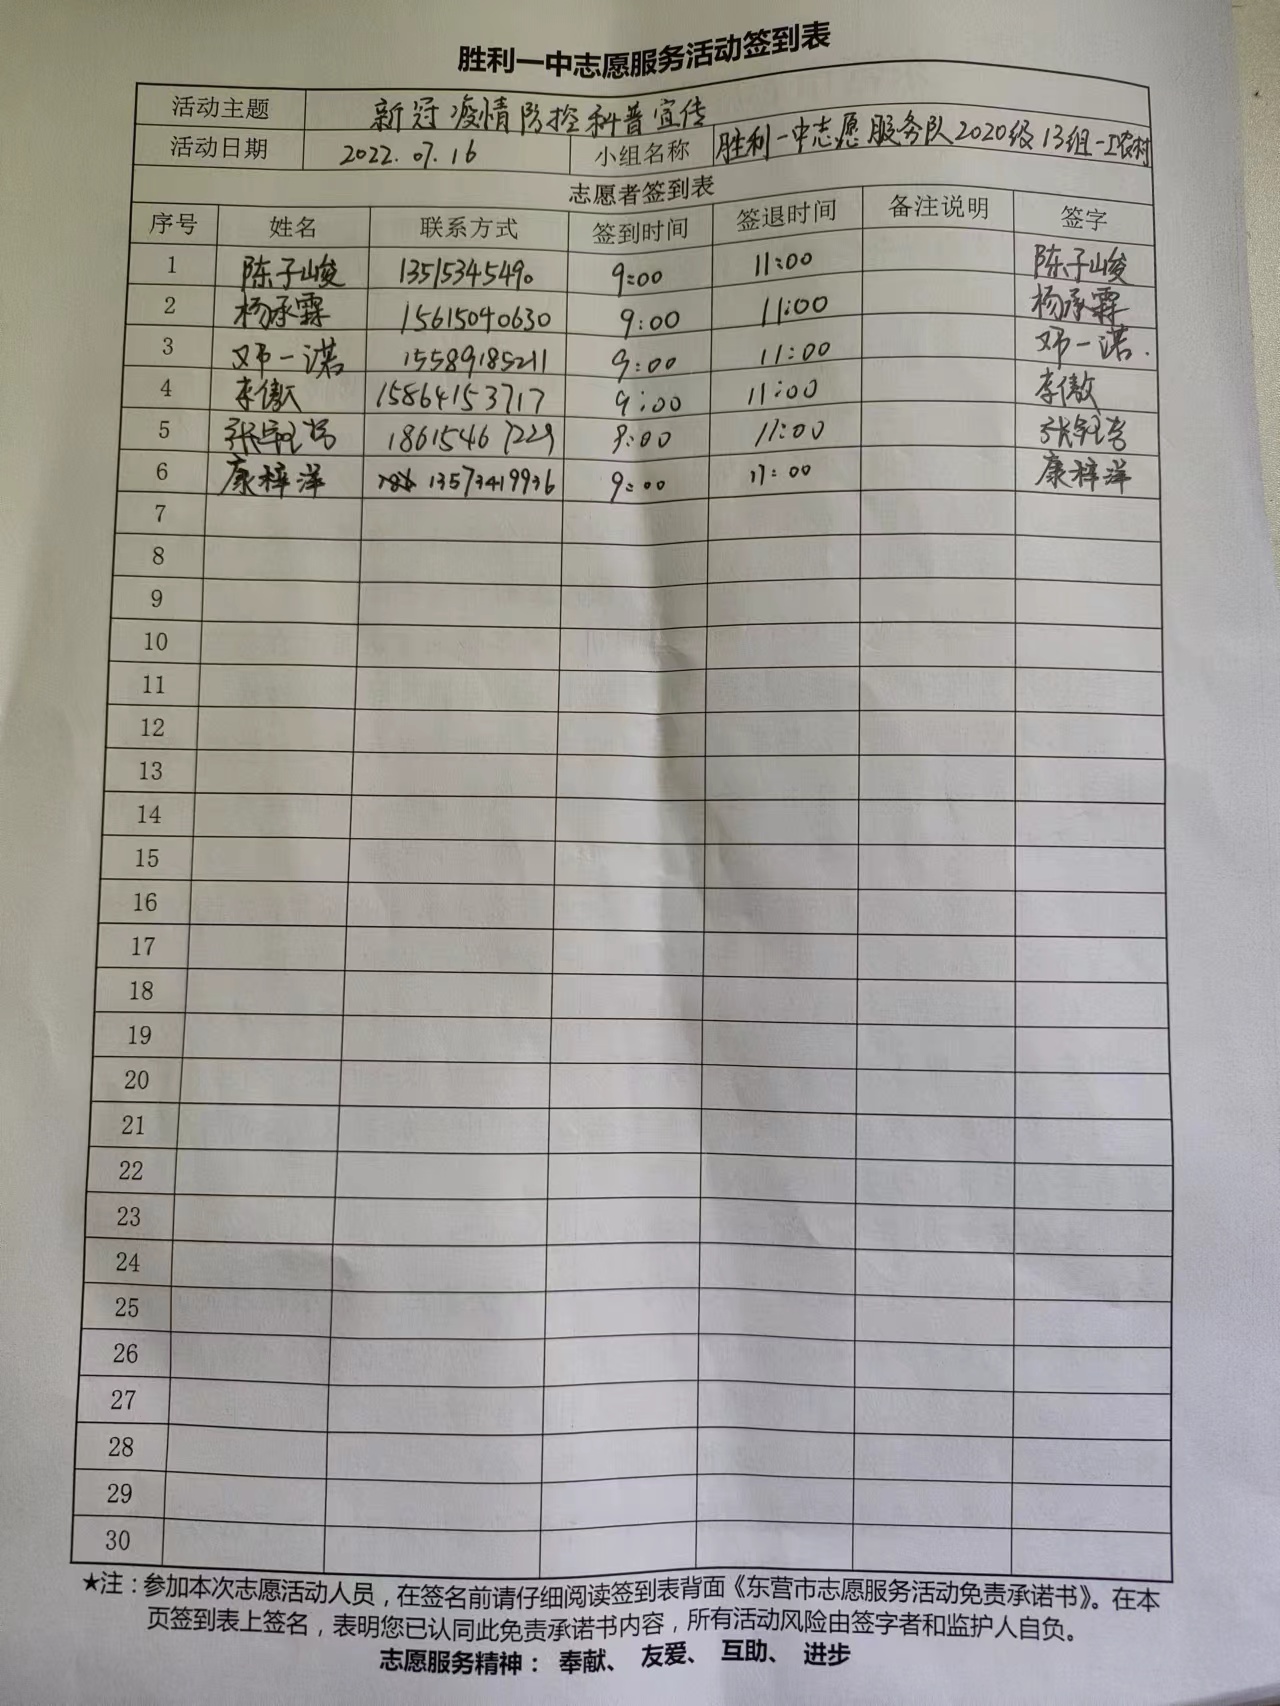 胜利一中志愿服务活动签到表
活动主题 新冠疫情防控科普宣传
活动日期 2022.07.16 小组名称 胜利一中志愿服务队2020级13组-工农村
志愿者签到表
序号 姓名 联系方式 签到时间 签退时间 备注说明 签字
1 陈子峻 13515345490 9:00 11:00 陈子峻
2 杨承霖 15615040630 9:00 11:00 杨承霖
3 邓一诺 15589185211 9:00 11:00 邓一诺.
4 李傲 15864153717 9:00 11:00 李傲
5 18615467229 9:00 11:00
6 康梓洋 13573419936 9:00 11:00 康梓洋
7
8
9
10
11
12
13
14
15
16
17
18
19
20
21
22
23
24
25
26
27
28
29
30
★注：参加本次志愿活动人员，在签名前请仔细阅读签到表背面《东营市志愿服务活动免责承诺书》。在本
页签到表上签名，表明您已认同此免责承诺书内容，所有活动风险由签字者和监护人自负。
志愿服务精神： 奉献、 友爱、 互助、 进步